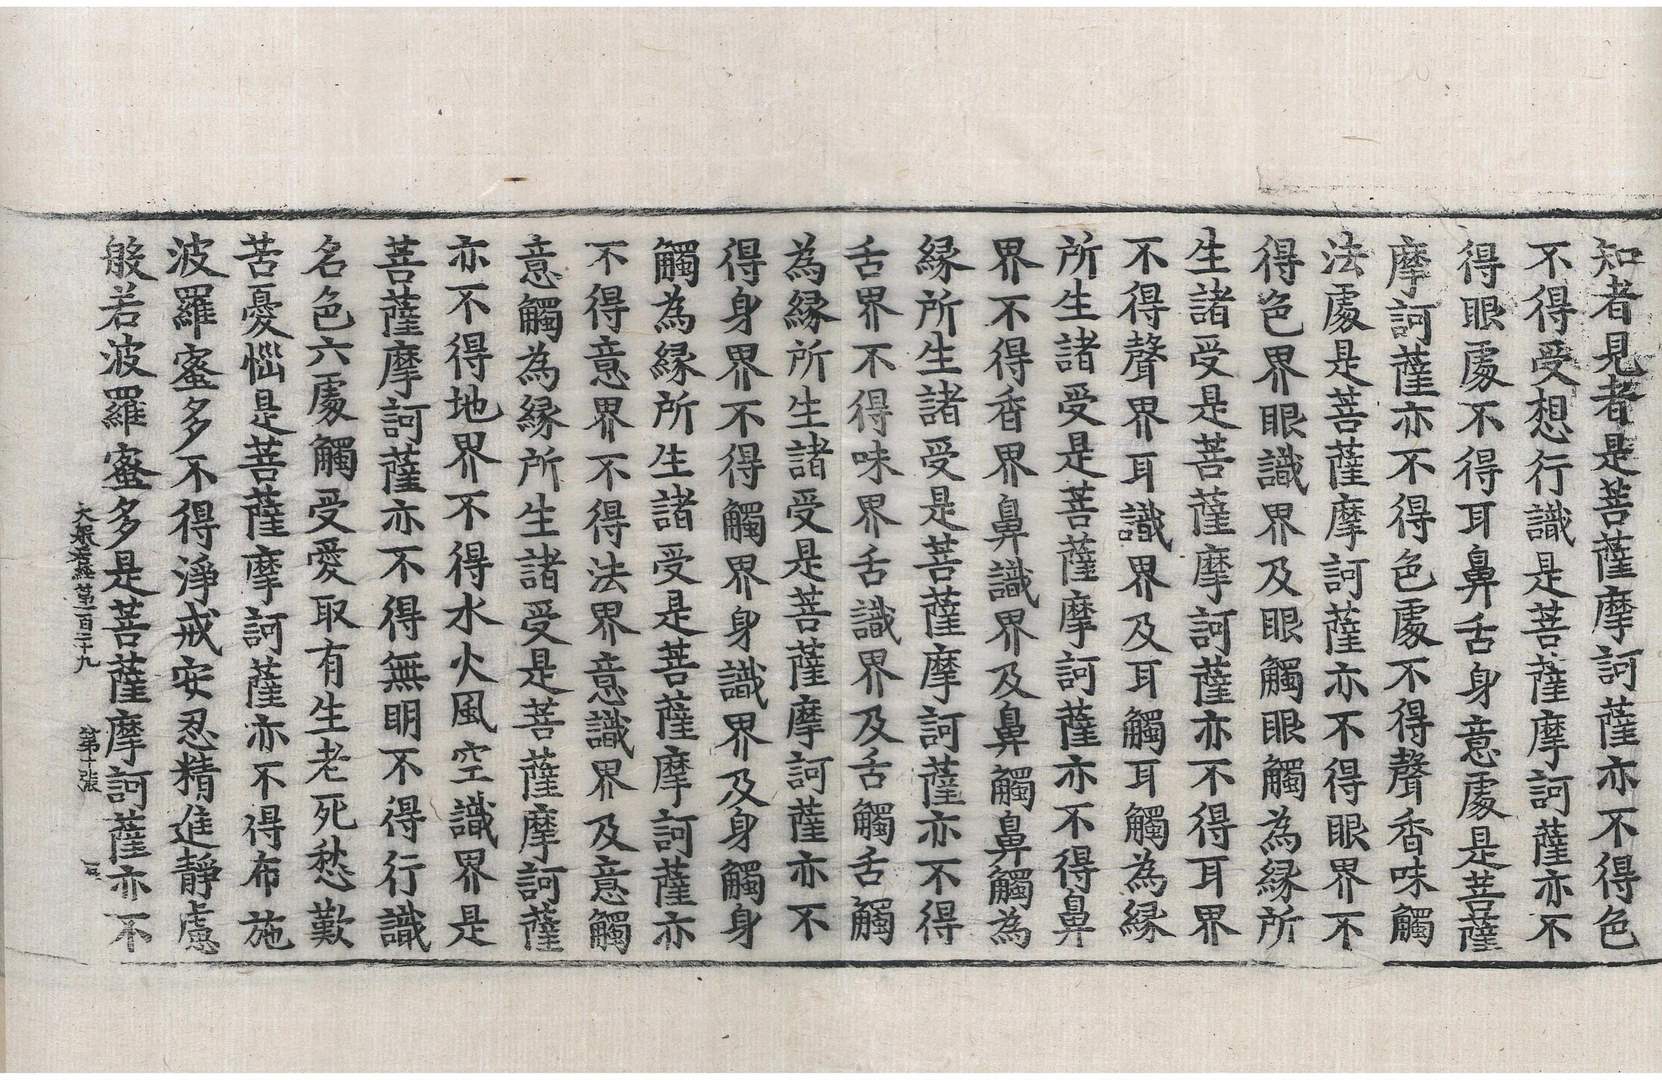 知者見者是菩薩摩訶薩亦不得色
不得受想行識是菩薩摩訶薩亦不
得眼處不得耳鼻舌身意處是菩薩
摩訶薩亦不得色處不得聲香味觸
法處是菩薩摩訶薩亦不得眼界不
得色界眼識界及眼觸眼觸為縁所
生諸受是菩薩摩訶薩亦不得耳界
不得聲界耳識界及耳觸耳觸為縁
所生諸受是菩薩摩訶薩亦不得鼻
界不得香界鼻識界及鼻觸鼻觸為
縁所生諸受是菩薩摩訶薩亦不得
舌界不得味界舌識界及舌觸舌觸
為縁所生諸受是菩薩摩訶薩亦不
得身界不得觸界身識界及身觸身
觸為縁所生諸受是菩薩摩訶薩亦
不得意界不得法界意識界及意觸
意觸為縁所生諸受是菩薩摩訶薩
亦不得地界不得水火風空識界是
菩薩摩訶薩亦不得無明不得行識
名色六處觸受愛取有生老死愁歎
苦憂惱是菩薩摩訶薩亦不得布施
波羅蜜多不得淨戒安忍精進靜慮
般若波羅蜜多是菩薩摩訶薩亦不
大般若經第一百二十九 第十張